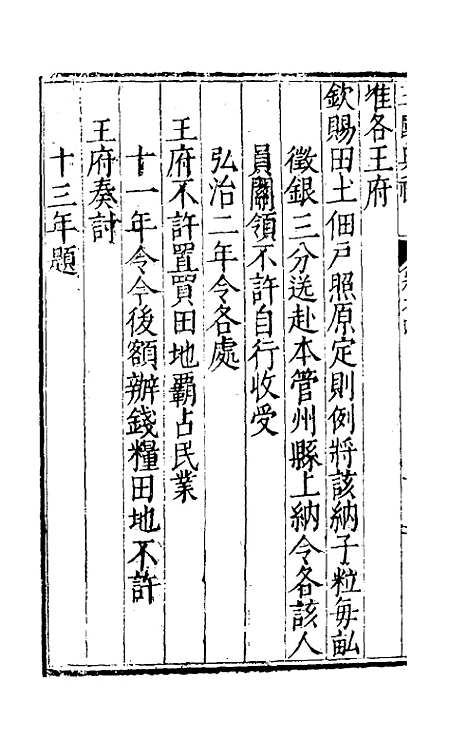 准各王府
欽賜田土佃戶照原定則例將該納子粒每畝
徵銀三分送赴本管州縣上納令各該人
員關領不許自行收受
弘治二年令各處
王府不許置買田地霸占民業
十一年令今後額辦錢糧田地不許
王府奏討
十三年題